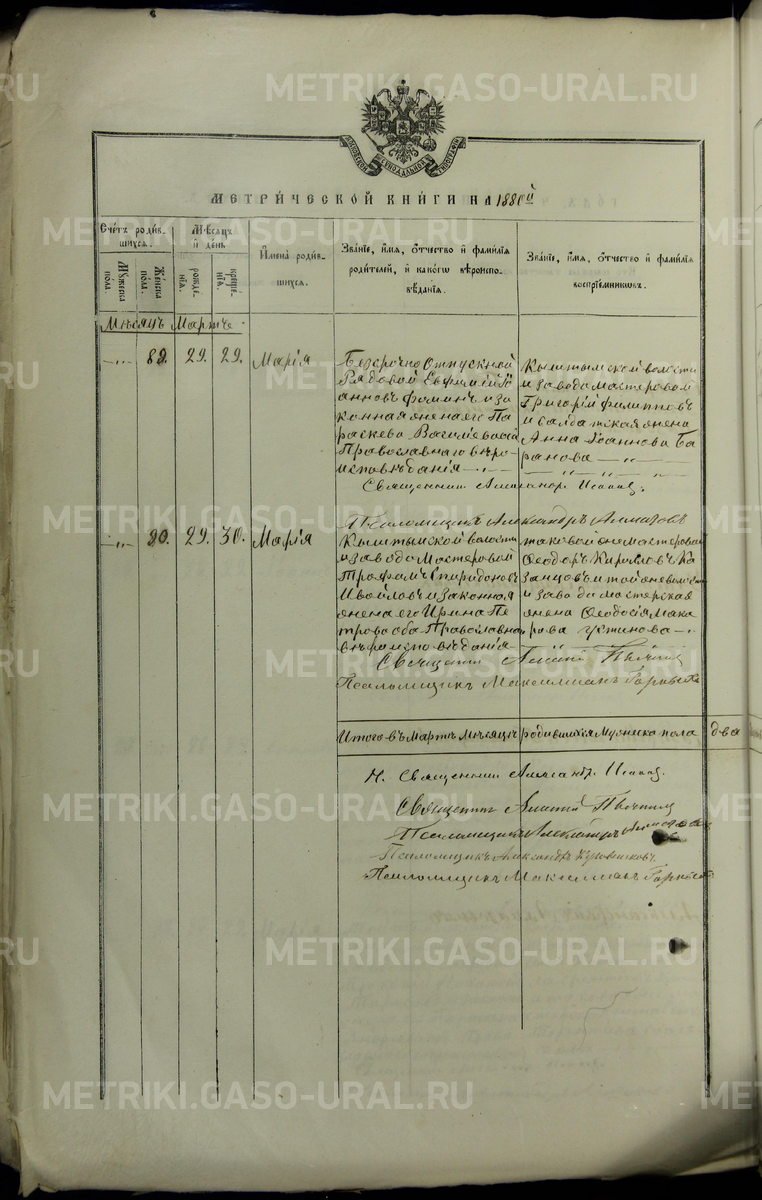 METRIKI.GASO-URAL.RU
МОСКОВСКОЙ СѴНОДАЛЬНОЙ ТИПОГРАФІИ
МЕТРИ́ЧЕСКОЙ КНИ́ГИ НА 1880й
Сче́тъ роди́в-
шихся.
Му́жеска
пола.
Же́нска
пола.
Мѣ́сяцъ
и де́нь
рожде́-
нія.
креще́-
нія.
Имена̀ роди́в-
шихся.
Зва́ніе, и́мя, о́тчество и фами́лія
роди́телей, и како́гѡ вѣроиспо-
вѣ́данія.
Зва́ніе, и́мя, о́тчество и фами́лія
воспріе́мникѡвъ.
Мѣсяцъ Мартъ
89. 29. 29. Марія
Безсрочно Отпускной
Рядовой Евфимій Іо
анновъ Фоминъ и за
конная жена его Па
раскева Василіева
Православнаго вѣро-
исповѣданія
Кыштымской волости
и завода мастеровой
Григорій Филипповъ
и солдатская жена
Анна Іоаннова Ба
ранова
Священникъ Александръ
Псаломщикъ Александръ
90. 29. 30. Марія
Кыштымской волости
и завода Мастеровой
Трофимъ Спиридоновъ
Ивойловъ и законная
жена его Ирина Пе
трова оба Православна
вѣроисповѣданія
таковой же мастеровой
Ѳеодоръ Кириловъ Ка
занцовъ и той же волости
и завода мастерская
жена Ѳеодосія Мака
рова Устинова
Священникъ
Псаломщикъ Максимиліанъ
Итого въ Мартѣ мѣсяцѣ родившихся Мужеска пола два
Н. Священникъ Александръ
Священникъ
Псаломщикъ Александръ
Псаломщикъ Александръ
Псаломщикъ Максимиліанъ